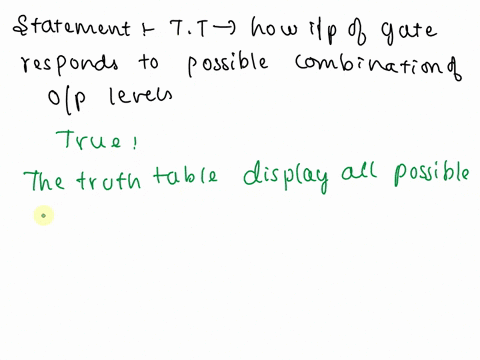 Statement :- T.T → how i/p of gate
responds to possible combination of
O/p levels
True!
The truth table display all possible